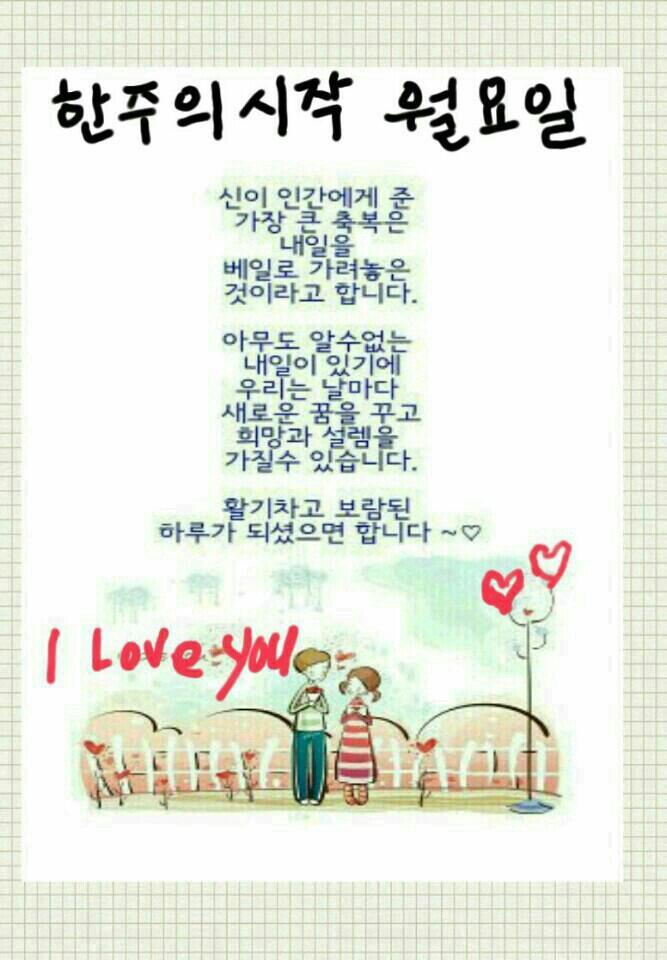 한주의시작 월요일
신이 인간에게 준
가장 큰 축복은
내일을
베일로 가려놓은
것이라고 합니다.
아무도 알수없는
내일이 있기에
우리는 날마다
새로운 꿈을 꾸고
희망과 설렘을
가질수 있습니다.
활기차고 보람된
하루가 되셨으면 합니다 ~♡
I Love you